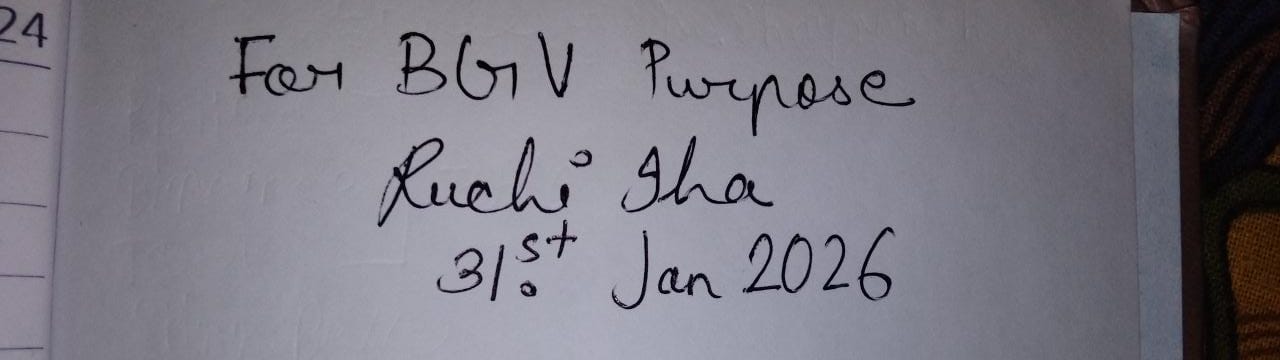 24
For BGV Purpose
Ruchi Jha
31st Jan 2026